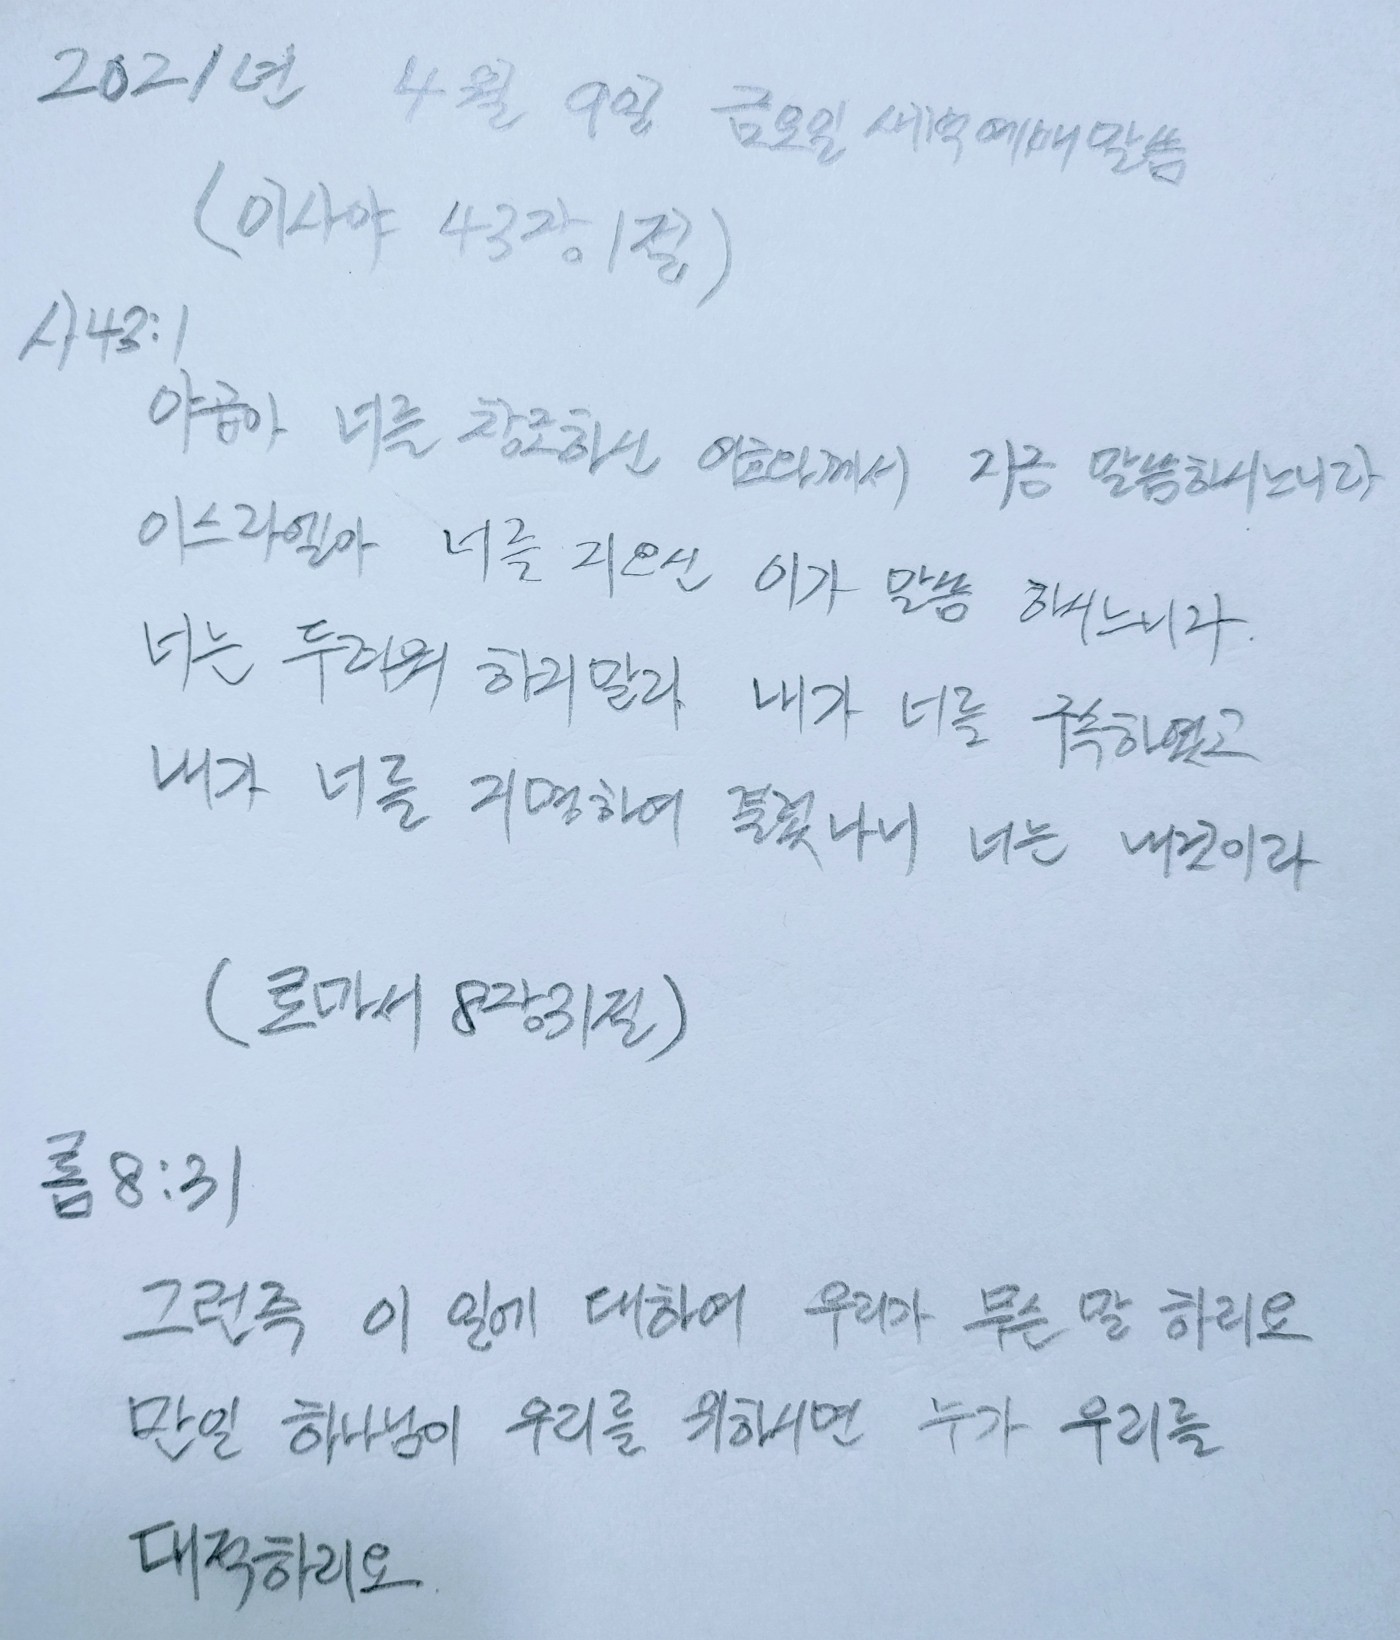 2021년 4월 9일 금요일 새벽예배말씀
(이사야 43장1절)
사43:1
야곱아 너를 창조하신 여호와께서 지금 말씀하시느니라
이스라엘아 너를 지으신 이가 말씀 하시느니라.
너는 두려워 하지말라 내가 너를 구속하였고
내가 너를 지명하여 불렀나니 너는 내것이라
(로마서 8장31절)
롬8:31
그런즉 이 일에 대하여 우리가 무슨 말 하리요
만일 하나님이 우리를 위하시면 누가 우리를
대적하리요.